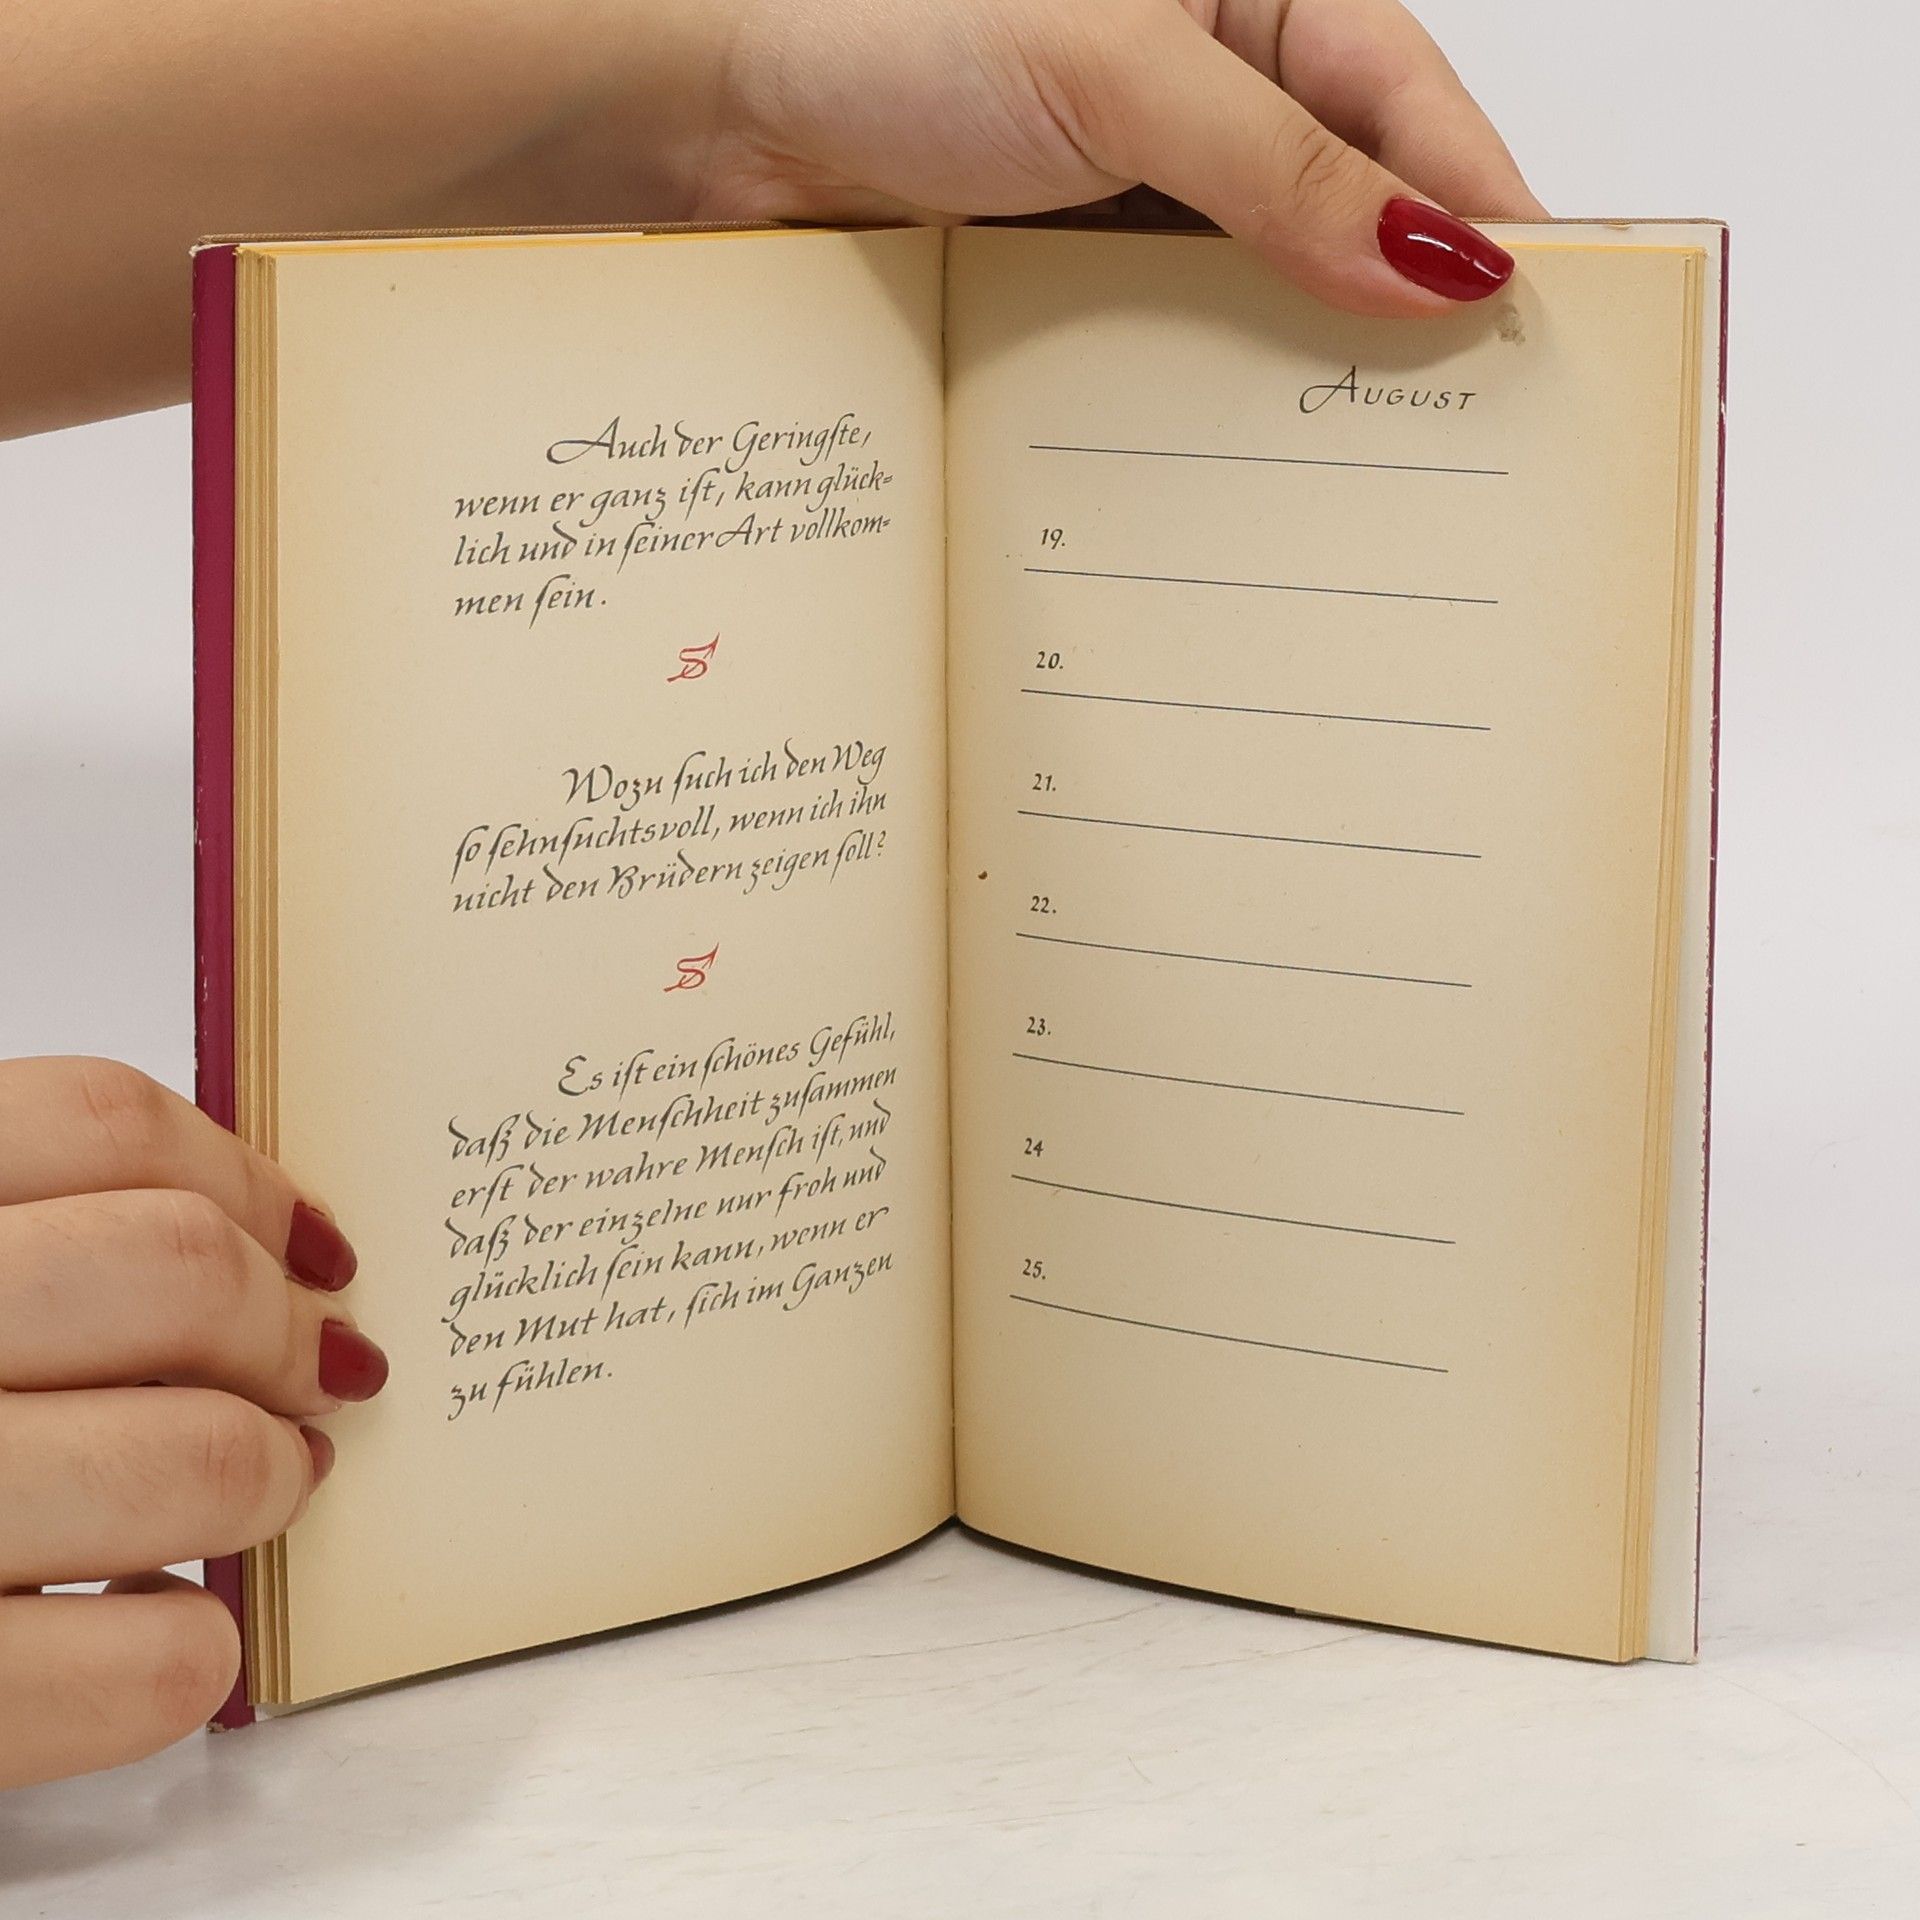 Auch der Geringſte,
wenn er ganz iſt, kann glück=
lich und in ſeiner Art vollkom=
men ſein.
Wozu ſuch ich den Weg
ſo ſehnſuchtsvoll, wenn ich ihn
nicht den Brüdern zeigen ſoll?
Es iſt ein ſchönes Gefühl,
daß die Menſchheit zuſammen
erſt der wahre Menſch iſt, und
daß der einzelne nur froh und
glücklich ſein kann, wenn er
den Mut hat, ſich im Ganzen
zu fühlen.
AUGUST
19.
20.
21.
22.
23.
24
25.